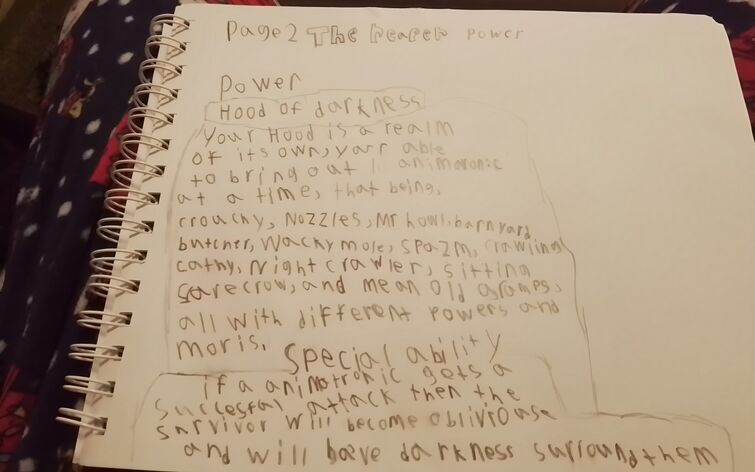 Page 2 The Reaper Power
Power
Hood of darkness
Your Hood is a realm
of its own, yarr able
to bring out 1 animoronic
at a time, that being,
crouchy, Nozzles, Mr howl, barnyard
butcher, Wacky mole, Spazm, Crawling
cathy, Night crawler, sitting
sarecrow, and mean old gramps,
all with different powers and
moris.
Special ability
if a animotronic gets a
succesfal attack then the
survivor will become oblivrouse
and will have darkness surround them